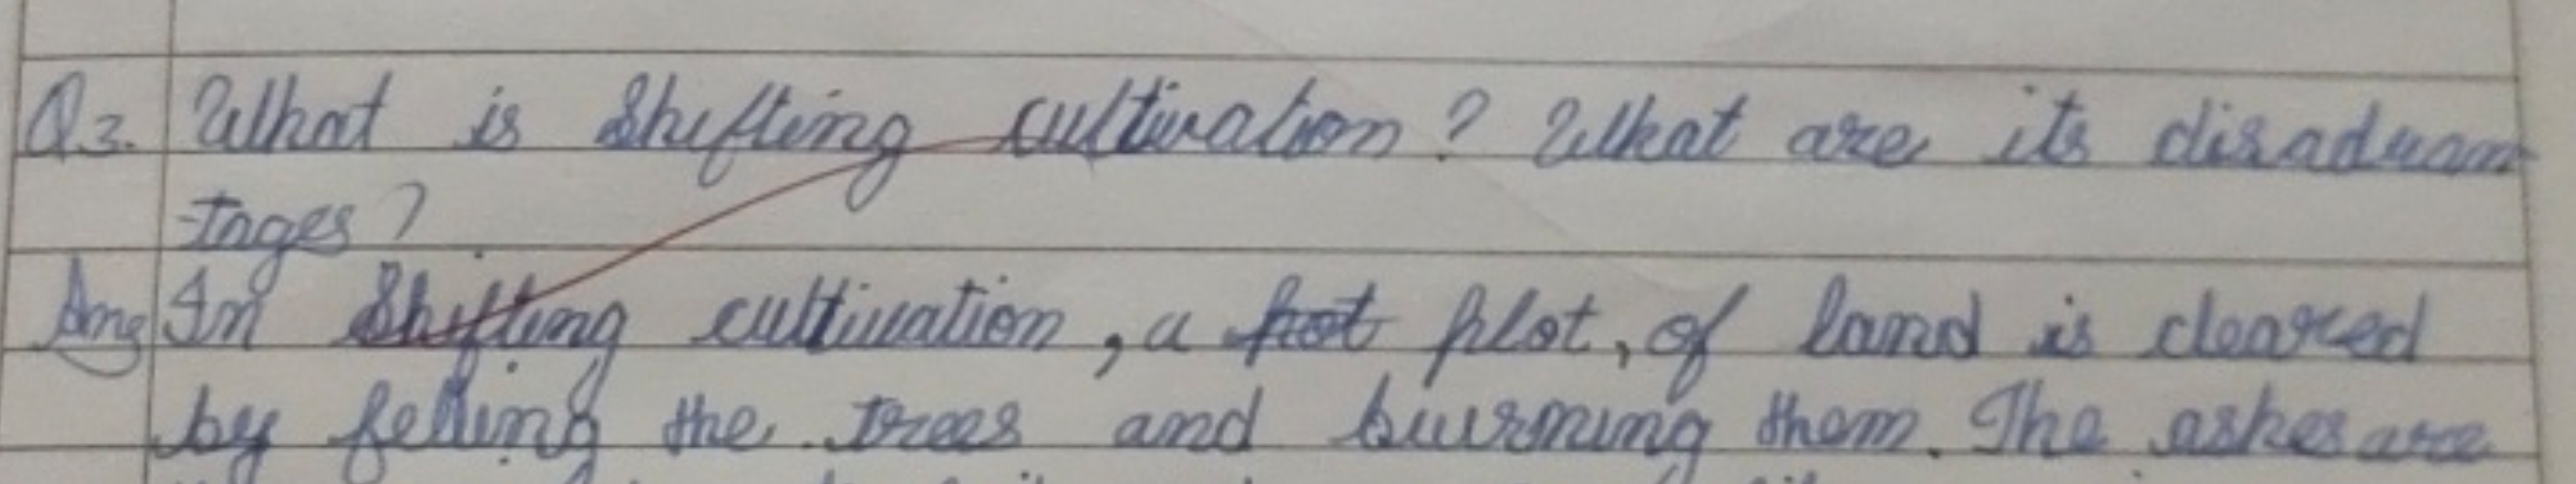 Q3. What is Shifting cultivation? What are its disadvan
-tages?
Ans In Shifting cultivation, a plot, of land is cleared
by felling the trees and burning them. The ashes are